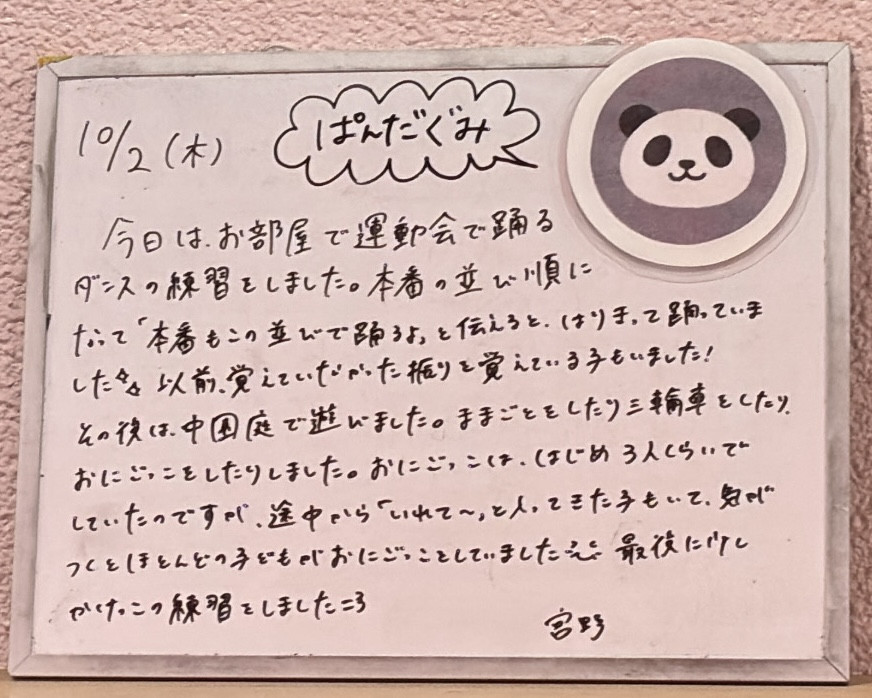 10/2(木)
ぱんだぐみ
今日は、お部屋で運動会で踊る
ダンスの練習をしました。本番の並び順に
なって「本番もこの並びで踊るよ」と伝えると、はりきって踊っていま
した 以前、覚えていなかった振りを覚えている子もいました!
その後は、中国庭で遊びました。ままごとをしたり三輪車をしたり、
おにごっこをしたりしました。おにごっこは、はじめ3人くらいで
していたのですが、途中から「いれて〜」と入ってきた子もいて、気が
つくとほとんどの子どもがおにごっこをしていました 最後に少し
かけっこの練習をしました
宮野